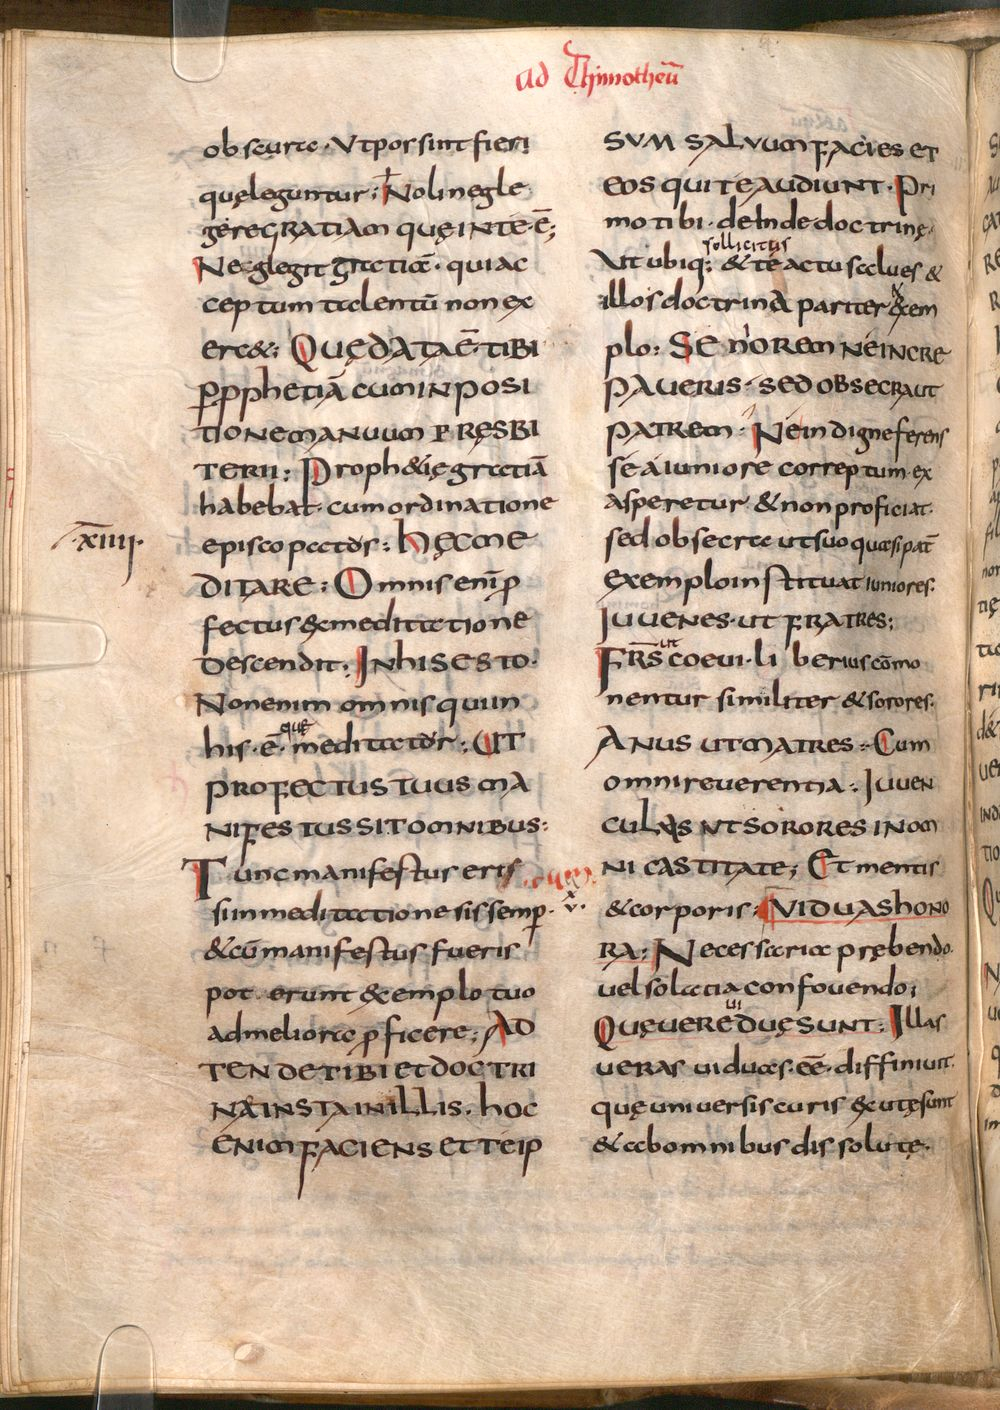 ad Thimotheū
obscura· Utpossint fieri
quęleguntur; Nolineglе
gereGRATIAM QUĘINTE·Ē;
Neglegit gratiā· quiac
ceptum talentū nonex
erc&; QUĘDATAĒ·TIBI
PPPHETIĀ CUMINPOSI
TIONEMANUUM PRESBI
TERII; Proph&ięgratiā
habebat· cumordinatione
episcopatus; hĘCME
·xiiii·
DITARE; Omnisenīp
fectus exmeditatione
Descendit; INHISESTO·
Nonenim omnisquiin
que
his·ē· meditatur; UT
PROFECTUS TUUS MA
NIFESTUSSITOMNIBUS:
Tuncmanifestus eris
siinmeditationesissemp·
&cūmanifestus fueris
pot erunt exemplo tuo
admeliora pficere; AD
TENDETIBIETDOCTRI
NAEINSTAINILLIS· hOC
ENIMFACIENSETTEIP
SUM SALVUMFACIES ET
EOS QUITEAUDIUNT· Pri
mo tibi· deindedoctrinę·
sollicitus
Ut ubiq; &teactusalues &
illosdoctrina pariter &exem
plo: SENIOREM NEINCRE
PAUERIS· SEDOBSECRAUT
PATREM· Neindigneferens
seaiuniore correptum·ex
asperetur &nonproficiat·
sedobsecra utsuoquasipat̄
exemploinstituat iuniores·
IUUENES·UT FRATRES;
ut
FRS̄ coeui·liberiuscōmo
nentur similiter &sorores·
ANUS UTMATRES; Cum
omnireuerentia· IUUEN
CULAS UTSORORES INOM
NI CASTITATE; Et mentis
xv.
&corporis; VIDUAShONO
RA; Necessaria prębendo·
uelsolaciaconfouendo;
ui
QUĘUEREDUĘSUNT; Illas
ueras uiduas·ēē·diffiniuit·
quęuniuersiscuris exutęsunt
&abomnibus dissolutę·